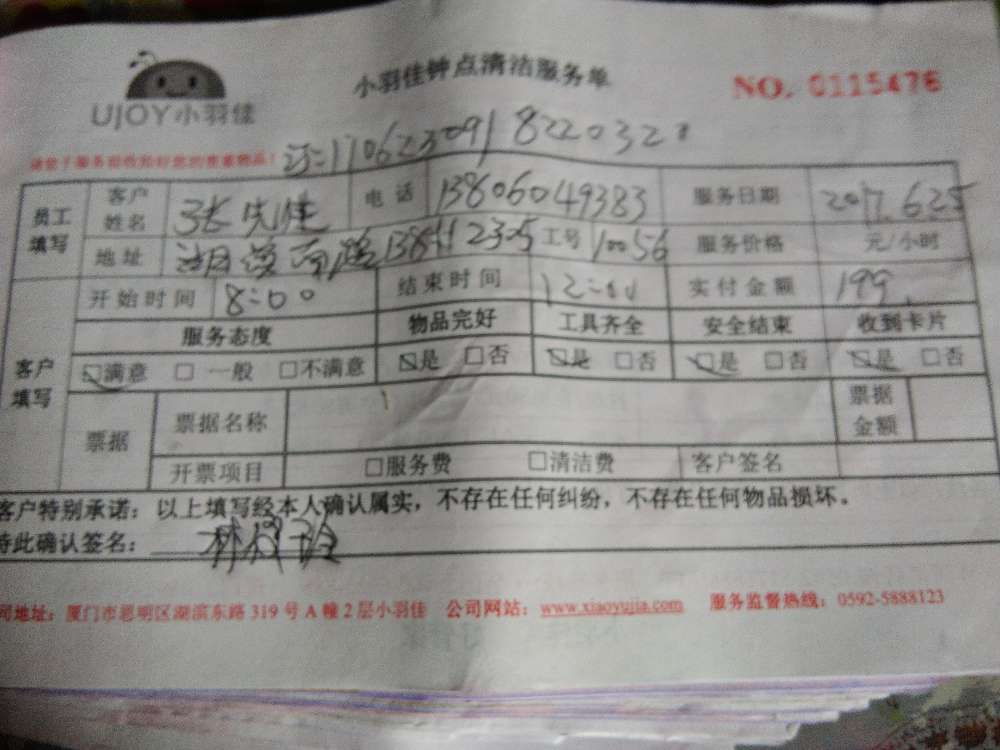 小羽佳钟点清洁服务单
NO. 0115476
UJOY小羽佳
1706230918220320
员工填写 客户姓名 张先生 电话 13806049383 服务日期 2017.6.25
地址 湖滨南路 2305 工号 10056 服务价格 元/小时
客户填写 开始时间 8:00 结束时间 12:00 实付金额 199
服务态度 物品完好 工具齐全 安全结束 收到卡片
☑满意 □一般 □不满意 ☑是 □否 ☑是 □否 ☑是 □否 ☑是 □否
票据 票据名称 票据金额
开票项目 □服务费 □清洁费 客户签名
客户特别承诺：以上填写经本人确认属实，不存在任何纠纷，不存在任何物品损坏。
特此确认签名：
司地址：厦门市思明区湖滨东路 319 号 A 幢 2 层小羽佳 公司网站：www.xiaoyujia.com 服务监督热线：0592-5888123